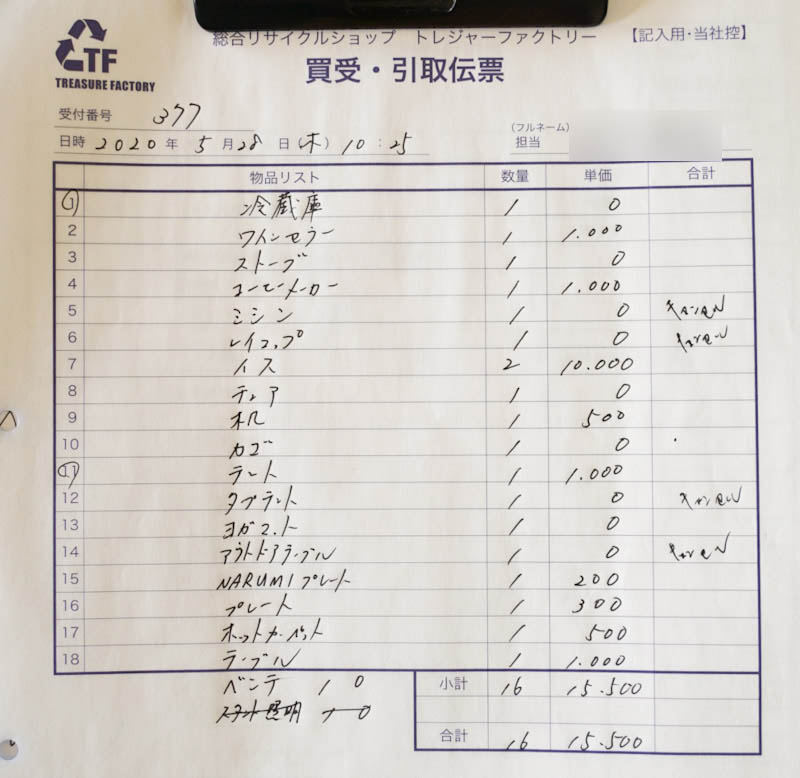 TF
TREASURE FACTORY
総合リサイクルショップ トレジャーファクトリー 【記入用・当社控】
買受・引取伝票
受付番号 377
(フルネーム)
日時 2020年 5月28日(木) 10:25 担当
物品リスト 数量 単価 合計
1 冷蔵庫 1 0
2 ワインセラー 1 1.000
3 ストーブ 1 0
4 コーヒーメーカー 1 1.000
5 ミシン 1 0 キャンセル
6 レイコップ 1 0 キャンセル
7 イス 2 10.000
8 ティア 1 0
9 机 1 500
10 カゴ 1 0
11 テント 1 1.000
12 タープテント 1 0 キャンセル
13 ヨガマット 1 0
14 アウトドアテーブル 1 0 キャンセル
15 NARUMIプレート 1 200
16 プレート 1 300
17 ホットカーペット 1 500
18 テーブル 1 1.000
ベンチ 1 0 小計 16 15.500
スタンド照明 1 0
合計 16 15.500